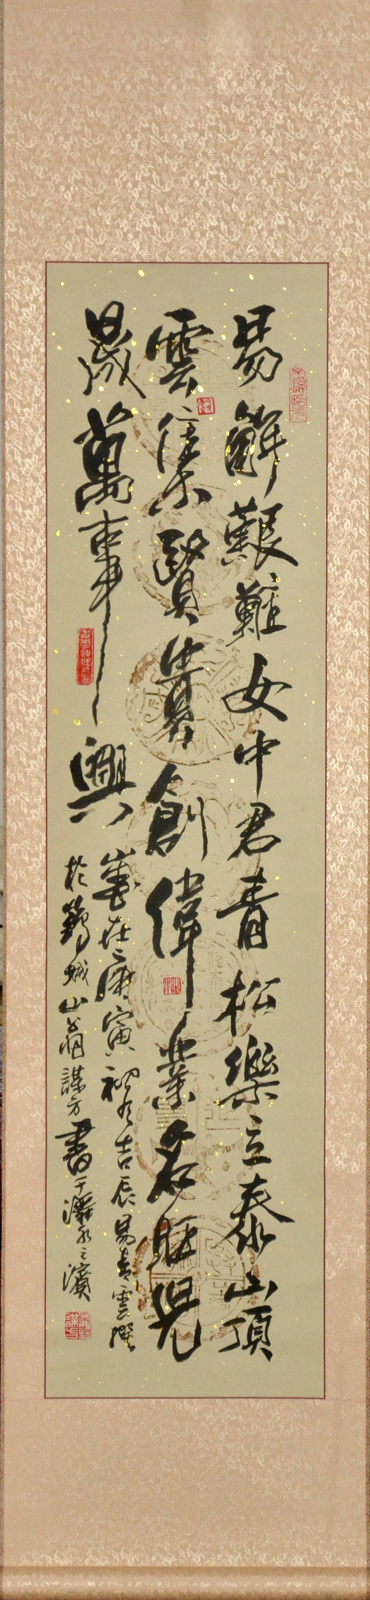 易解艱難女中君青松樂立泰山頂
雲集賢貴創偉業名旺兒
晟萬事興
歲在庚寅初吉辰易青雲撰
於鶴城山翁謀方書于潕水之濱